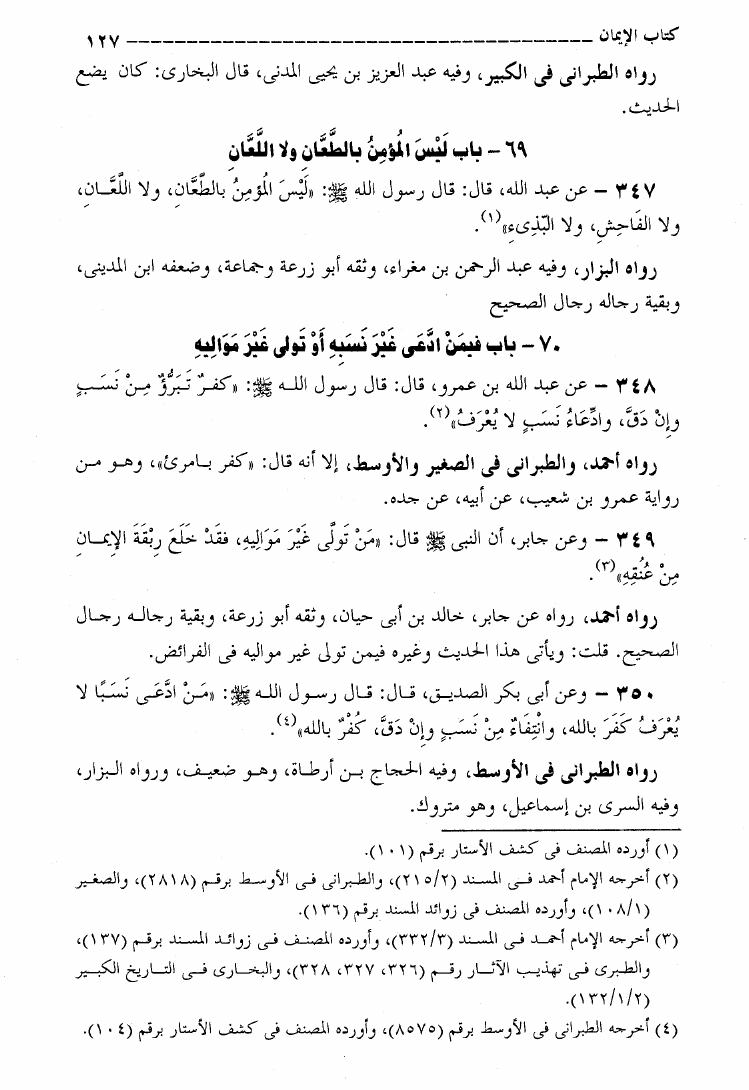 كتاب الإيمان ــــــــــــــــــــــــــــــــــــــــــــــــــــ ١٢٧
رواه الطبرانى فى الكبير، وفيه عبد العزيز بن يحيى المدنى، قال البخارى: كان يضع
الحديث.
٦٩ – باب لَيْسَ المُؤمِنُ بالطَّعَّانِ ولا اللَّعَّانِ
٣٤٧ – عن عبد الله، قال: قال رسول الله ﷺ: «لَيْسَ المُؤمِنُ بالطَّعَّانِ، ولا اللَّعَّـانِ،
ولا الفَاحِشِ، ولا البّذِىءِ»(١).
رواه البزار، وفيه عبد الرحمن بن مغراء، وثقه أبو زرعة وجماعة، وضعفه ابن المدينى،
وبقية رجاله رجال الصحيح
٧٠ – باب فيمَنْ ادَّعَى غَيْرَ نَسَبِهِ أَوْ تَولى غَيْرَ مَوَالِيهِ
٣٤٨ – عن عبد الله بن عمرو، قال: قال رسول اللـه ﷺ: «كـفرٌ تَـبَرُّؤٌ مِـنْ نَسَـبٍ
وإِنْ دَقَّ، وادِّعَاءُ نَسَبٍ لا يُعْرَفُ»(٢).
رواه أحمد، والطبرانى فى الصغير والأوسط، إلا أنه قال: «كفر بـامرئ»، وهـو مـن
رواية عمرو بن شعيب، عن أبيه، عن جده.
٣٤٩ – وعن جابر، أن النبى ﷺ قال: «مَنْ تَولَّى غَيْرَ مَوَالِيهِ، فقَدْ خلَعَ رِبْقَةَ الإيمـان
مِنْ عُنُقِهِ»(٣).
رواه أحمد، رواه عن جابر، خالد بن أبى حيان، وثقه أبو زرعة، وبقية رجالـه رجـال
الصحيح. قلت: ويأتى هذا الحديث وغيره فيمن تولى غير مواليه فى الفرائض.
٣٥٠ – وعن أبى بكر الصديـق، قـال: قـال رسـول اللـه ﷺ: «مَـنْ ادَّعَـى نَسَـبًا لا
يُعْرَفُ كَفَرَ بالله، وانْتِفَاءٌ مِنْ نَسَبٍ وإِنْ دَقَّ، كُفْرٌ بالله»(٤).
رواه الطبرانى فى الأوسط، وفيه الحجاج بـن أرطـاة، وهـو ضعيـف، ورواه الـبزار،
وفيه السرى بن إسماعيل، وهو متروك.
(١) أورده المصنف فى كشف الأستار برقم (١٠١).
(٢) أخرجه الإمام أحمد فـى المسند (٢١٥/٢)، والطبرانى فـى الأوسط برقـم (٢٨١٨)، والصغير
(١٠٨/١)، وأورده المصنف فى زوائد المسند برقم (١٣٦).
(٣) أخرجه الإمام أحمـد فـى المسند (٣٣٢/٣)، وأورده المصنـف فـى زوائـد المسند برقـم (١٣٧)،
والطبرى فـى تهذيـب الآثـار رقـم (٣٢٦، ٣٢٧، ٣٢٨)، والبخـارى فـى التـاريخ الكبير
(١٣٢/١/٢).
(٤) أخرجه الطبرانى فى الأوسط برقم (٨٥٧٥)، وأورده المصنف فى كشف الأستار برقم (١٠٤).